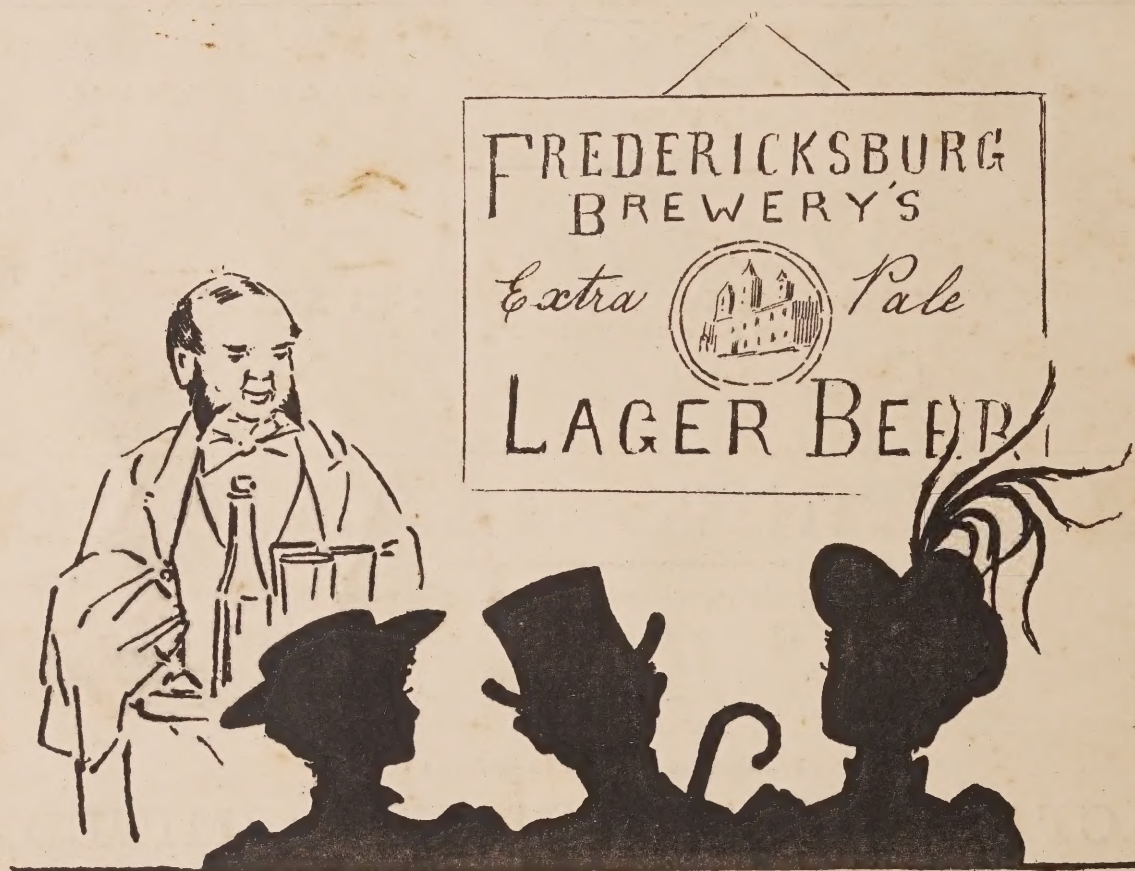 FREDERICKSBURG
BREWERY'S
Extra Pale
LAGER BEER.